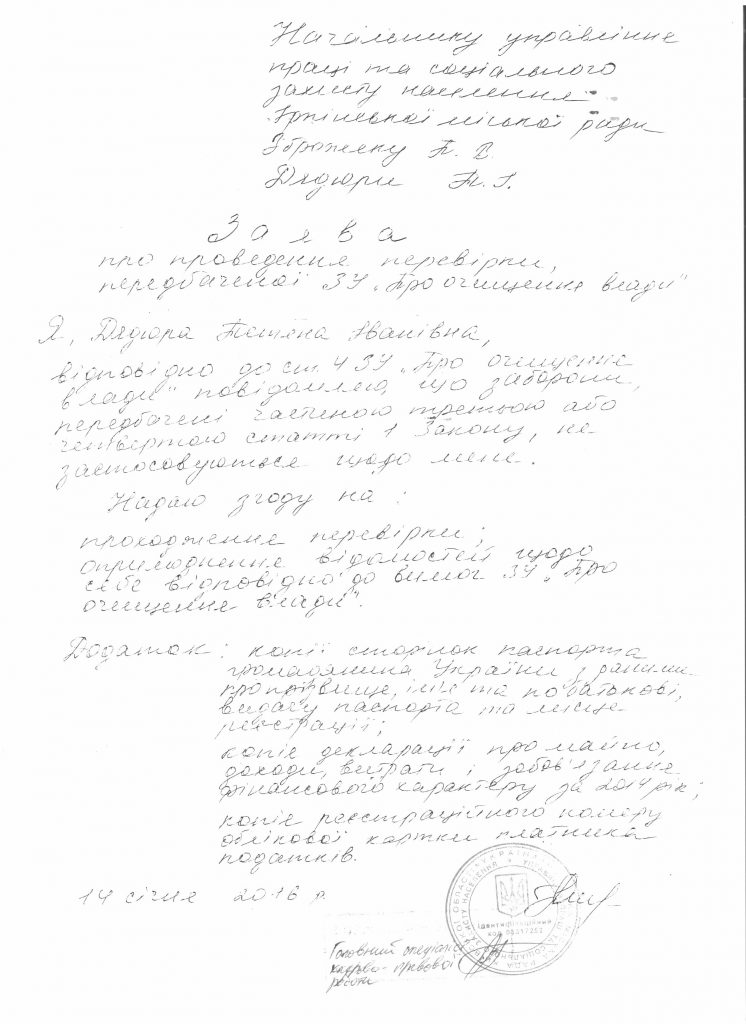 Начальнику управління
праці та соціального
захисту населення
Ірпінської міської ради
Зброжеку П. В.
Дядюри Т. І.
Заява
про проведення перевірки,
передбаченої ЗУ „Про очищення влади"
Я, Дядюра Тетяна Іванівна,
відповідно до ст. 4 ЗУ „Про очищення
влади" повідомляю, що заборони,
передбачені частиною третьою або
четвертою статті 1 Закону, не
застосовуються щодо мене.
Надаю згоду на:
проходження перевірки;
оприлюднення відомостей щодо
себе відповідно до вимог ЗУ „Про
очищення влади".
Додаток: копії сторінок паспорта
громадянина України з даними
про прізвище, ім'я та по батькові,
видачу паспорта та місце
реєстрації;
копія декларації про майно,
доходи, витрати і зобов'язання
фінансового характеру за 2014 рік;
копія реєстраційного номеру
облікової картки платника
податків.
14 січня 2016 р.
Ідентифікаційний
код
Головний спеціаліст
кадрово-правової
роботи